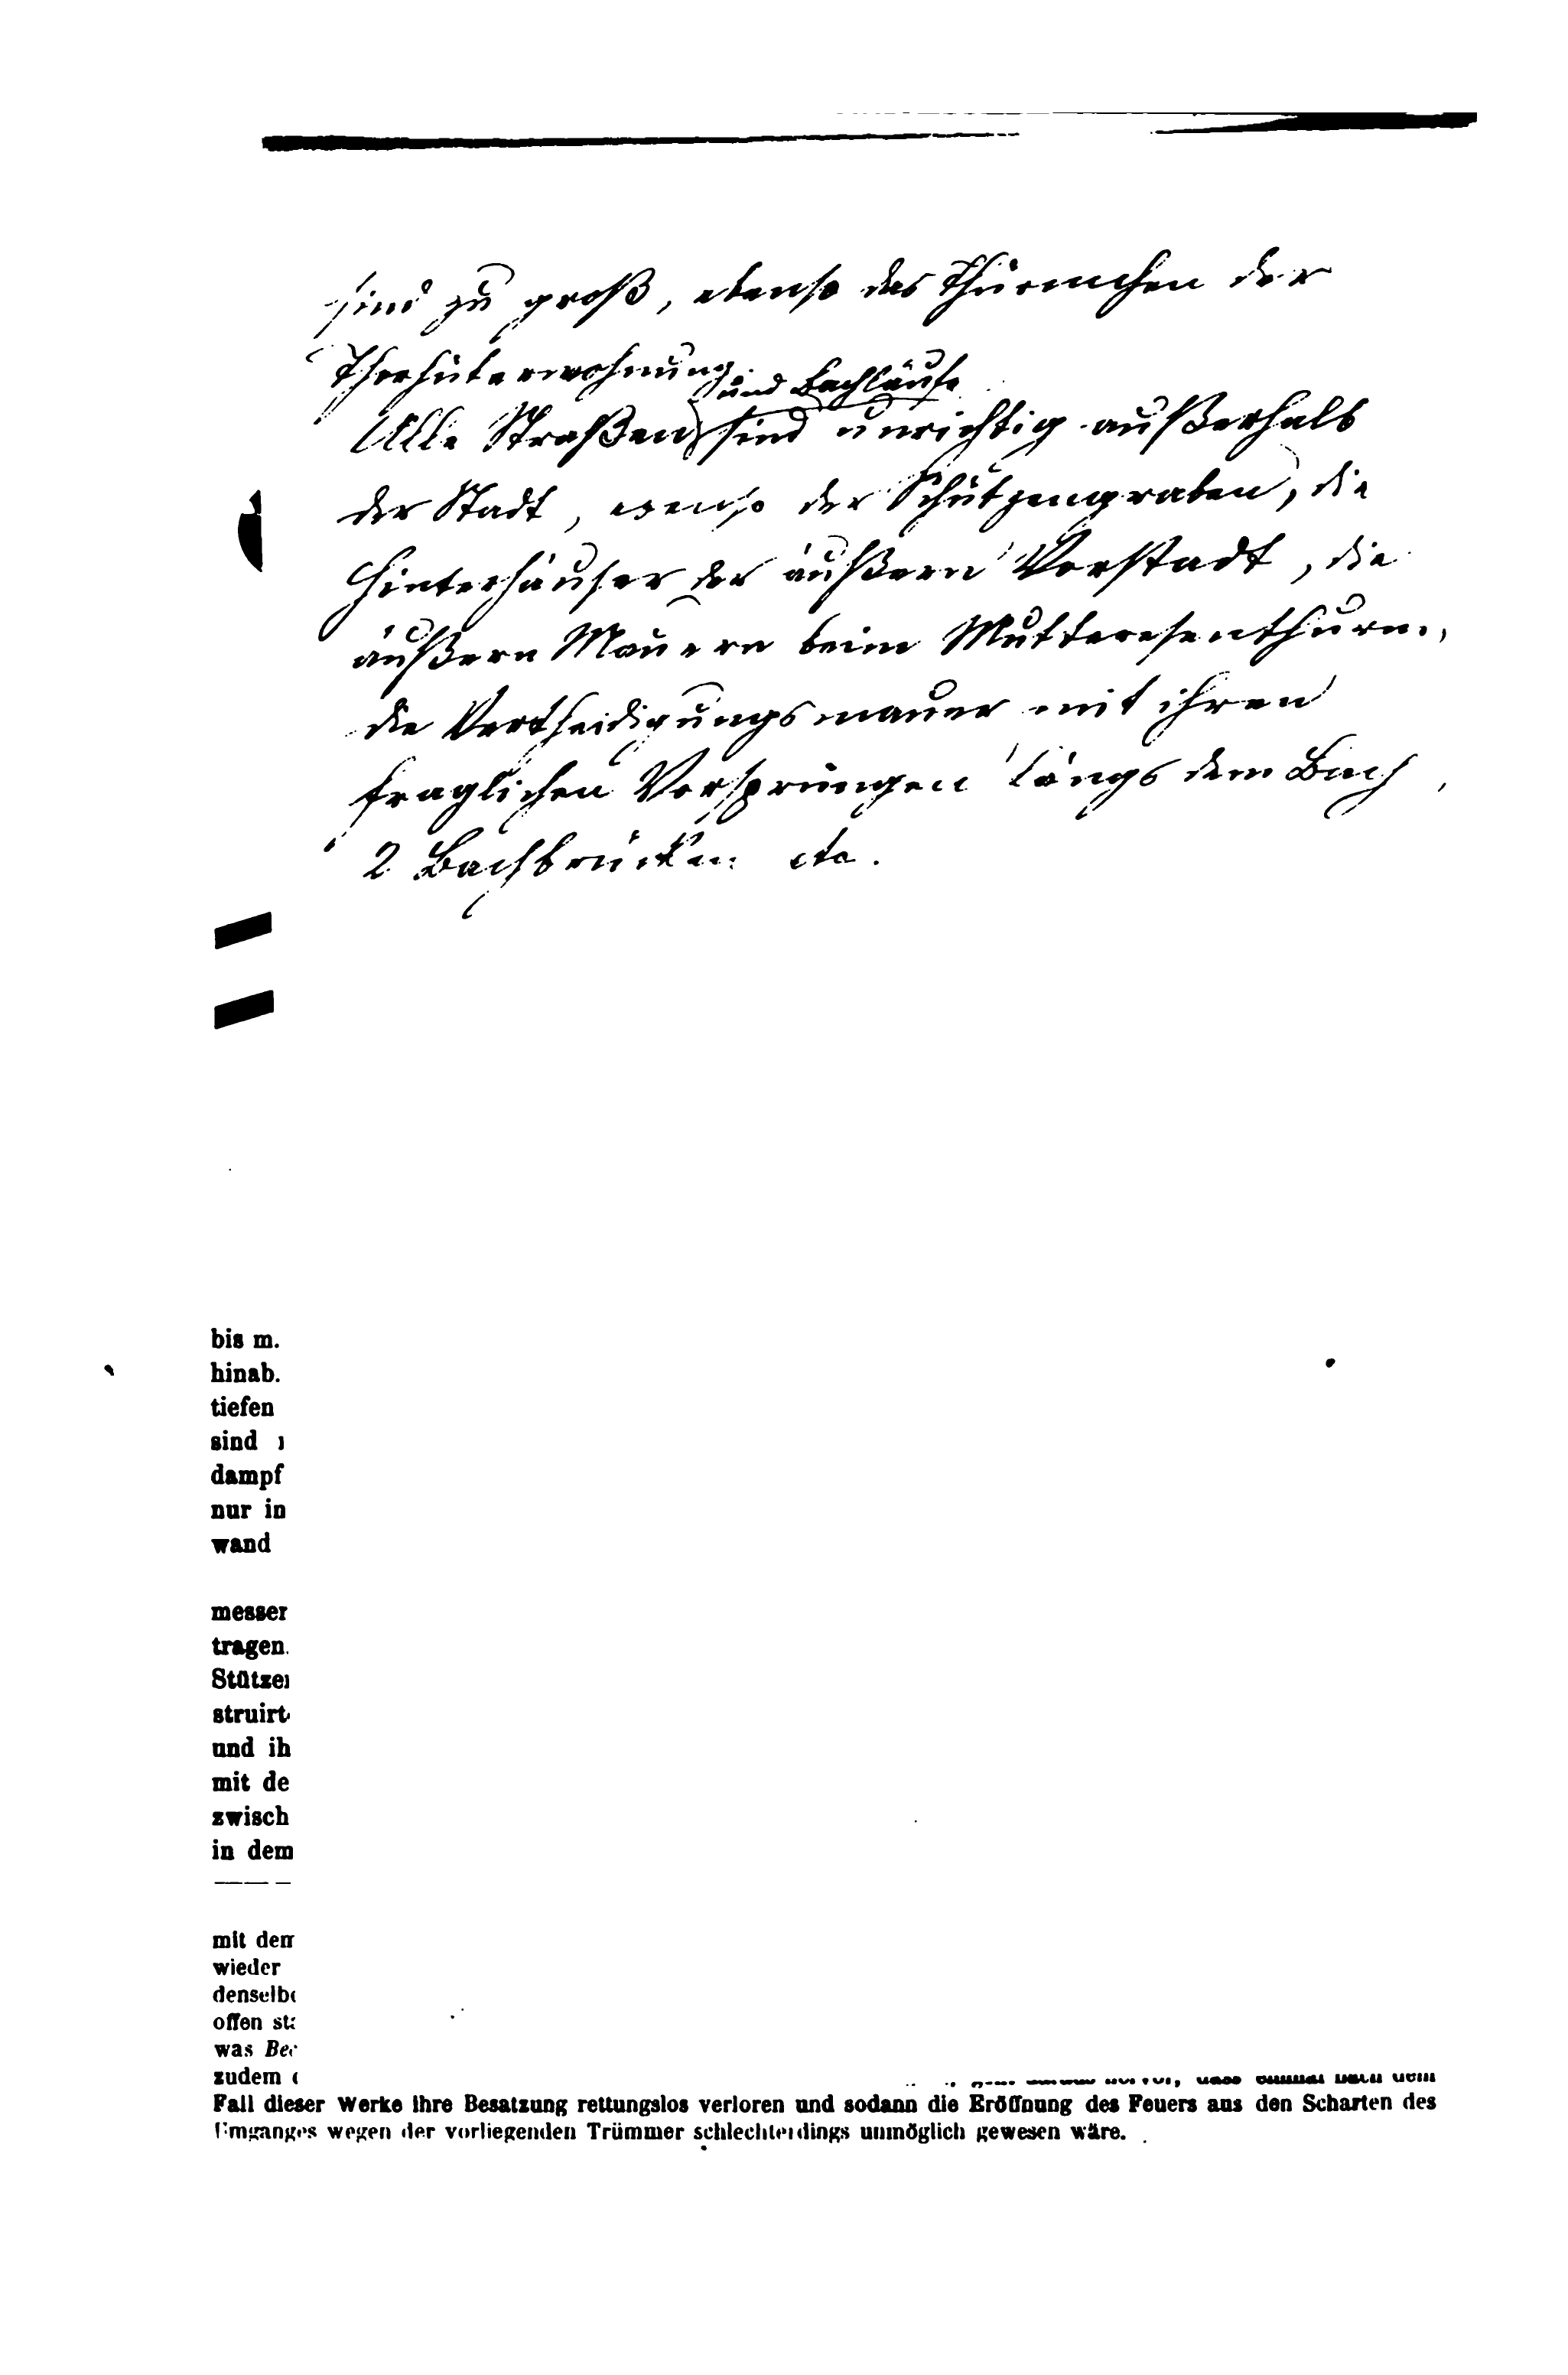 sind zu groß, ebenso das Thürmchen der
Thorhüterwohnung.
und Bachläufe
Alle Straßen sind unrichtig außerhalb
der Stadt, ebenso der Schützengraben, die
Hinterhäuser der äußern Vorstadt, die
äußern Mauern beim
die Vertheidigungsmauer mit ihren
fraglichen Vorsprüngen längs dem Bach,
2 Bachbrücken etc.
bis m.
hinab.
tiefen
sind
dampf
nur in
wand
messer
tragen.
Stütze
struirt
und ih
mit de
zwisch
in dem
mit dem
wieder
denselb
offen st
was Bec
zudem
dass einmal nach dem
Fall dieser Werke ihre Besatzung rettungslos verloren und sodann die Eröffnung des Feuers aus den Scharten des
Umganges wegen der vorliegenden Trümmer schlechterdings unmöglich gewesen wäre.